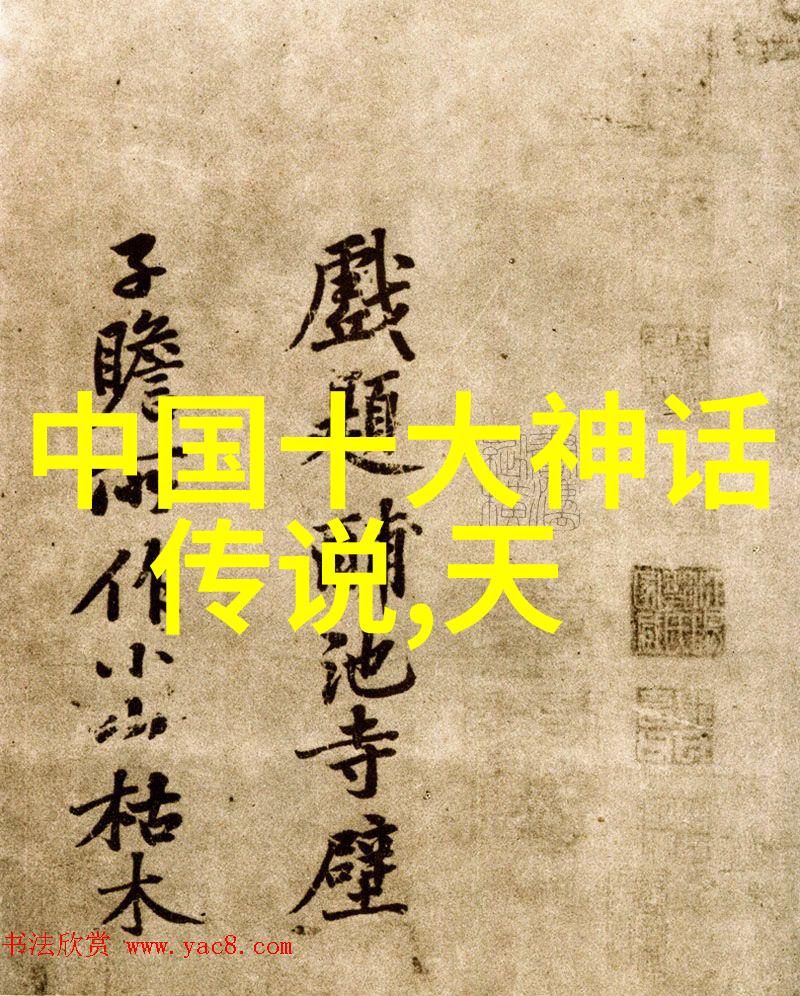 中国十大神话
传说,天
戲題酺池寺壁
子瞻所作小山枯木
书法欣赏 www.yac8.com